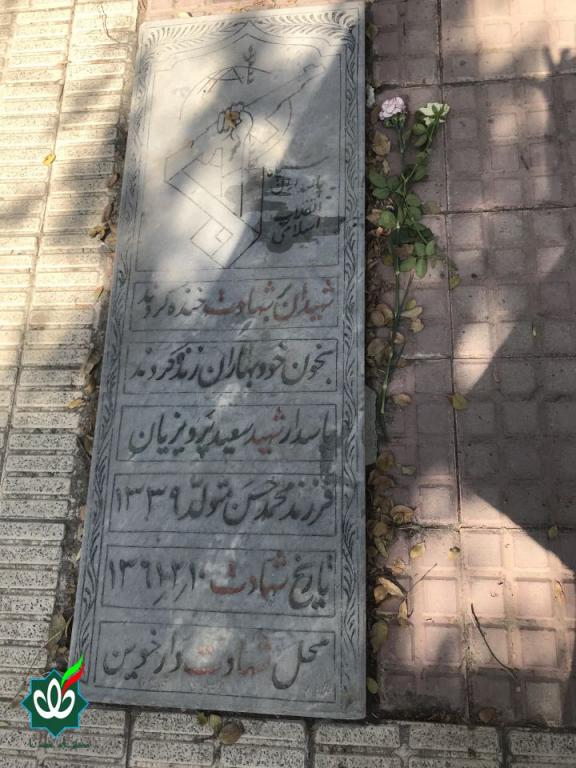 سپاه
پاسداران
انقلاب
اسلامی
شهیدان بر شهادت خنده کردند
بخون خود بهاران زنده کردند
پاسدار شهید سعید پرویزیان
فرزند محمد حسن متولد ۱۳۳۹
تاریخ شهادت ۱۳۶۱٫۲٫۱۰
محل شهادت دارخوین